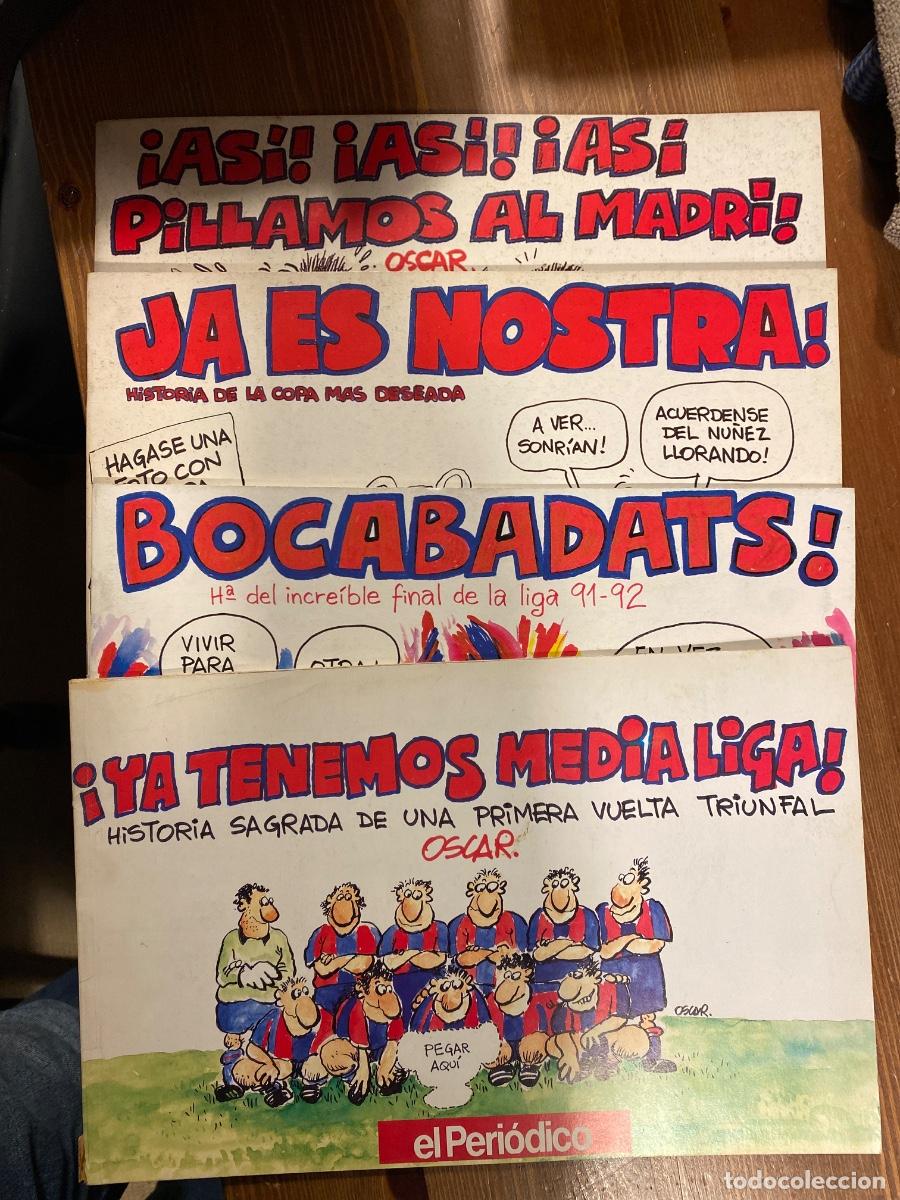 ¡ASÍ! ¡ASÍ! ¡ASÍ
PiLLAMOS AL MADRi!
OSCAR.
JA ES NOSTRA!
HiSTORiA DE LA COPA MAS DESEADA
HAGASE UNA
FOTO CON
A VER...
SONRÍAN!
ACUERDENSE
DEL NUÑEZ
LLORANDO!
BOCABADATS!
Hª del increíble final de la liga 91-92
VIVIR
PARA
OTRA!
EN VEZ
¡YA TENEMOS MEDiA LiGA!
HiSTORiA SAGRADA DE UNA PRiMERA VUELTA TRiUNFAL
OSCAR.
OSCAR.
PEGAR
AQUÍ
el Periódico
todocoleccion